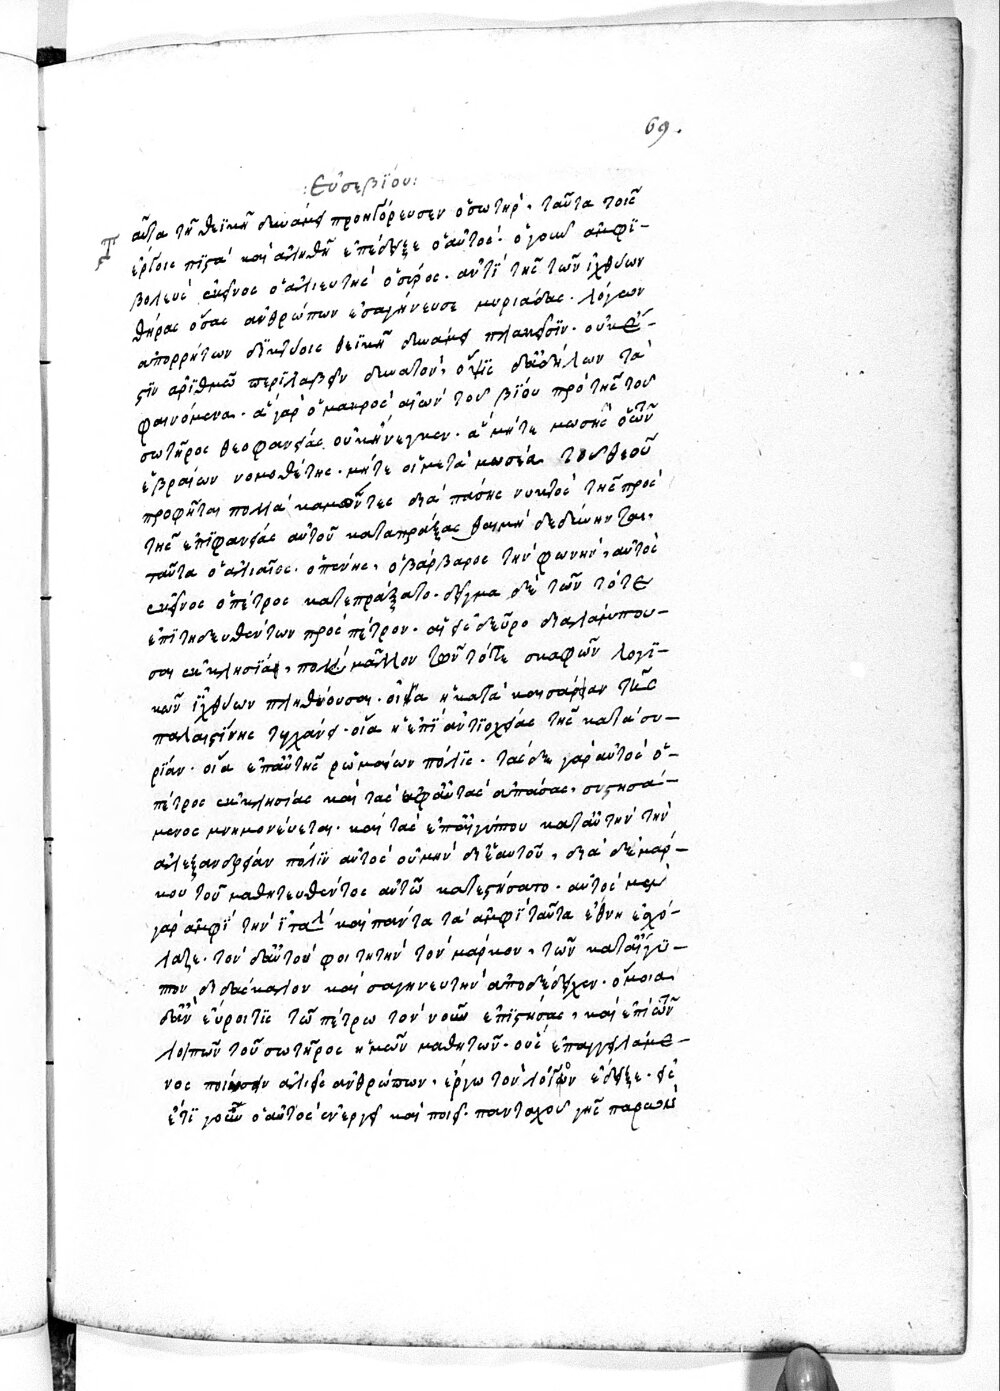 69.
:Εὐσεβΐου:
Ταῦτα τῇ θεϊκῇ δυνάμει προηγόρευσεν ὁ σωτήρ, ταῦτα τοῖς
ἔργοις πιστὰ καὶ ἀληθῆ ἐπέδειξε ὁ αὐτός. ὁ γοῦν ἀμφϊ-
βολεὺς ἐκεῖνος ὁ ἁλιευτὴς ὁ σύρος. ἀντὶ τῆς τῶν ἰχθύων
θήρας ὅσας ἀνθρώπων ἐσαγήνευσε μυριάδας. λόγων
ἀπορρήτων δϊκτύοις θεϊκῇ δυνάμει πλακεῖσϊν. οὐκ ἔ-
στϊν ἀρϊθμῷ περϊλαβεῖν δυνατόν, ὄψϊς δ' ἀδήλων τὰ
φαινόμενα. ἃ γὰρ ὁ μακρὸς αἰὼν τοῦ βΐου πρὸ τῆς τοῦ
σωτῆρος θεοφανείας οὐκ ἤνεγκεν. ἃ μήτε μωσῆς ὁ τῶν
ἑβραίων νομοθέτης. μήτε οἱ μετὰ μωσέα τοῦ θεοῦ
προφῆται πολλὰ καμόντες διὰ πάσης νυκτὸς τῆς πρὸ
τῆς ἐπϊφανείας αὐτοῦ καταπράξασθαι μὴ δεδύνηνται,
ταῦτα ὁ γαλιλαῖος. ὁ πένης, ὁ βάρβαρος τὴν φωνήν, αὐτὸς
ἐκεῖνος ὁ πέτρος κατεπράξατο. δεῖγμα δὲ τῶν τότε
ἐπϊτηδευθέντων πρὸς πέτρον. αἱ εἰς δεῦρο διαλάμπου-
σαι ἐκκλησΐαι, πολὺ μᾶλλον τῶν τότε σκαφῶν λογϊ-
κῶν ἰχθύων πληθύουσαι. οἵα ἡ κατὰ καισάρειαν τῆς
παλαιστΐνης τυγχάνει. οἵα ἡ ἐπΐ ἀντϊοχείας τῆς κατὰ συ-
ρΐαν. οἵα ἐπ' αὐτῆς ῥωμαίων πόλϊς. τάσδε γὰρ αὐτὸς ὁ
πέτρος ἐκκλησΐας καὶ τὰς ἀμφ' αὐτὰς ἁπάσας. συστησά-
μενος μνημονεύεται. καὶ τὰς ἐπ' αἰγύπτου κατ' αὐτὴν τὴν
ἀλεξάνδρειαν πόλϊν αὐτὸς οὐ μὴν δι' ἑαυτοῦ, διὰ δὲ μάρ-
κου τοῦ μαθητευθέντος αὐτῷ κατεστήσατο. αὐτὸς μὲν
γὰρ ἀμφΐ τὴν ἰταλ καὶ πάντα τὰ ἀμφΐ ταῦτα ἔθνη ἐσχό-
λαζε. τὸν δ' αὐτοῦ φοιτητὴν τὸν μάρκον, τῶν κατ' αἴγυ-
πτον διδάσκαλον καὶ σαγηνευτὴν ἀποδέδειχεν. ὅμοια
δ' ἂν εὕροι τϊς τῷ πέτρῳ τὸν νοῦν ἐπϊστήσας, καὶ ἐπὶ τῶν
λοιπῶν τοῦ σωτῆρος ἡμῶν μαθητῶν. οὓς ἐπαγγειλάμε-
νος ποιήσειν ἁλιεῖς ἀνθρώπων, ἔργῳ τὸν λόγον ἔδειξε. εἰσ
έτϊ γοῦν ὁ αὐτὸς ἐνεργεῖ καὶ ποιεῖ. πανταχοῦ γῆς παρὼν